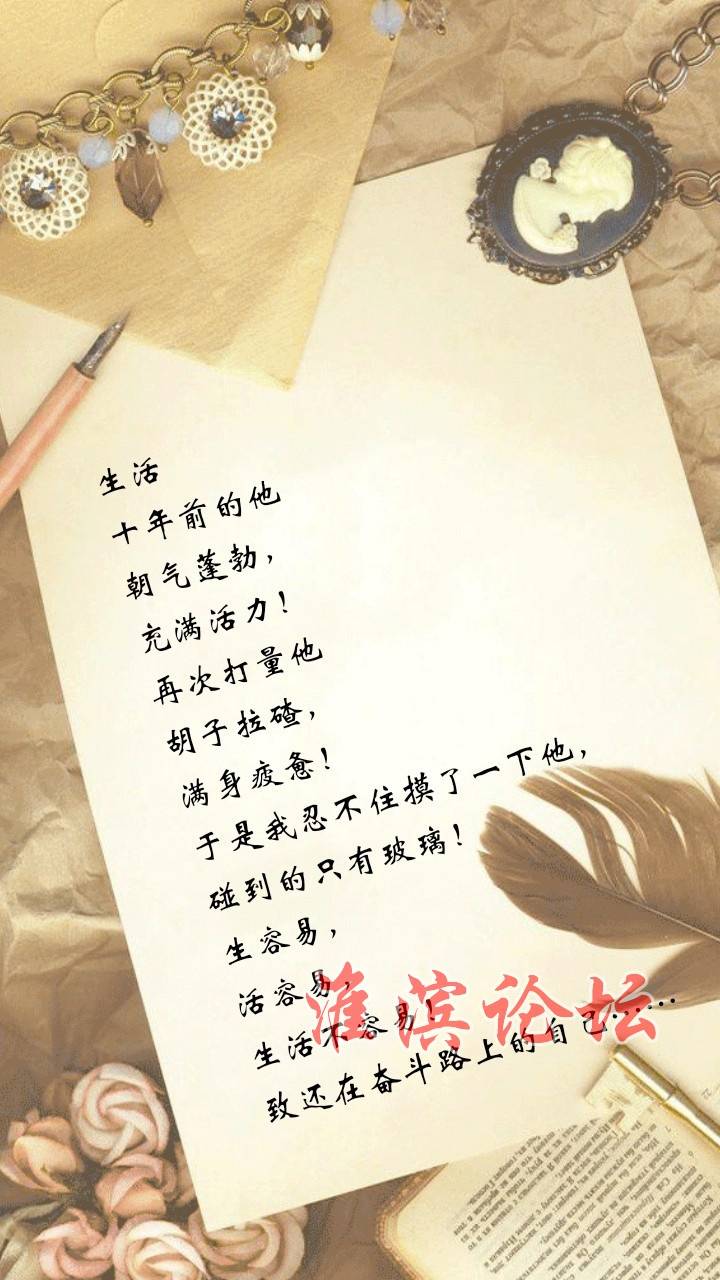 生活
十年前的他
朝气蓬勃，
充满活力！
再次打量他
胡子拉碴，
满身疲惫！
于是我忍不住摸了一下他，
碰到的只有玻璃！
生容易，
活容易，
生活不容易！
致还在奋斗路上的自己……
淮滨论坛